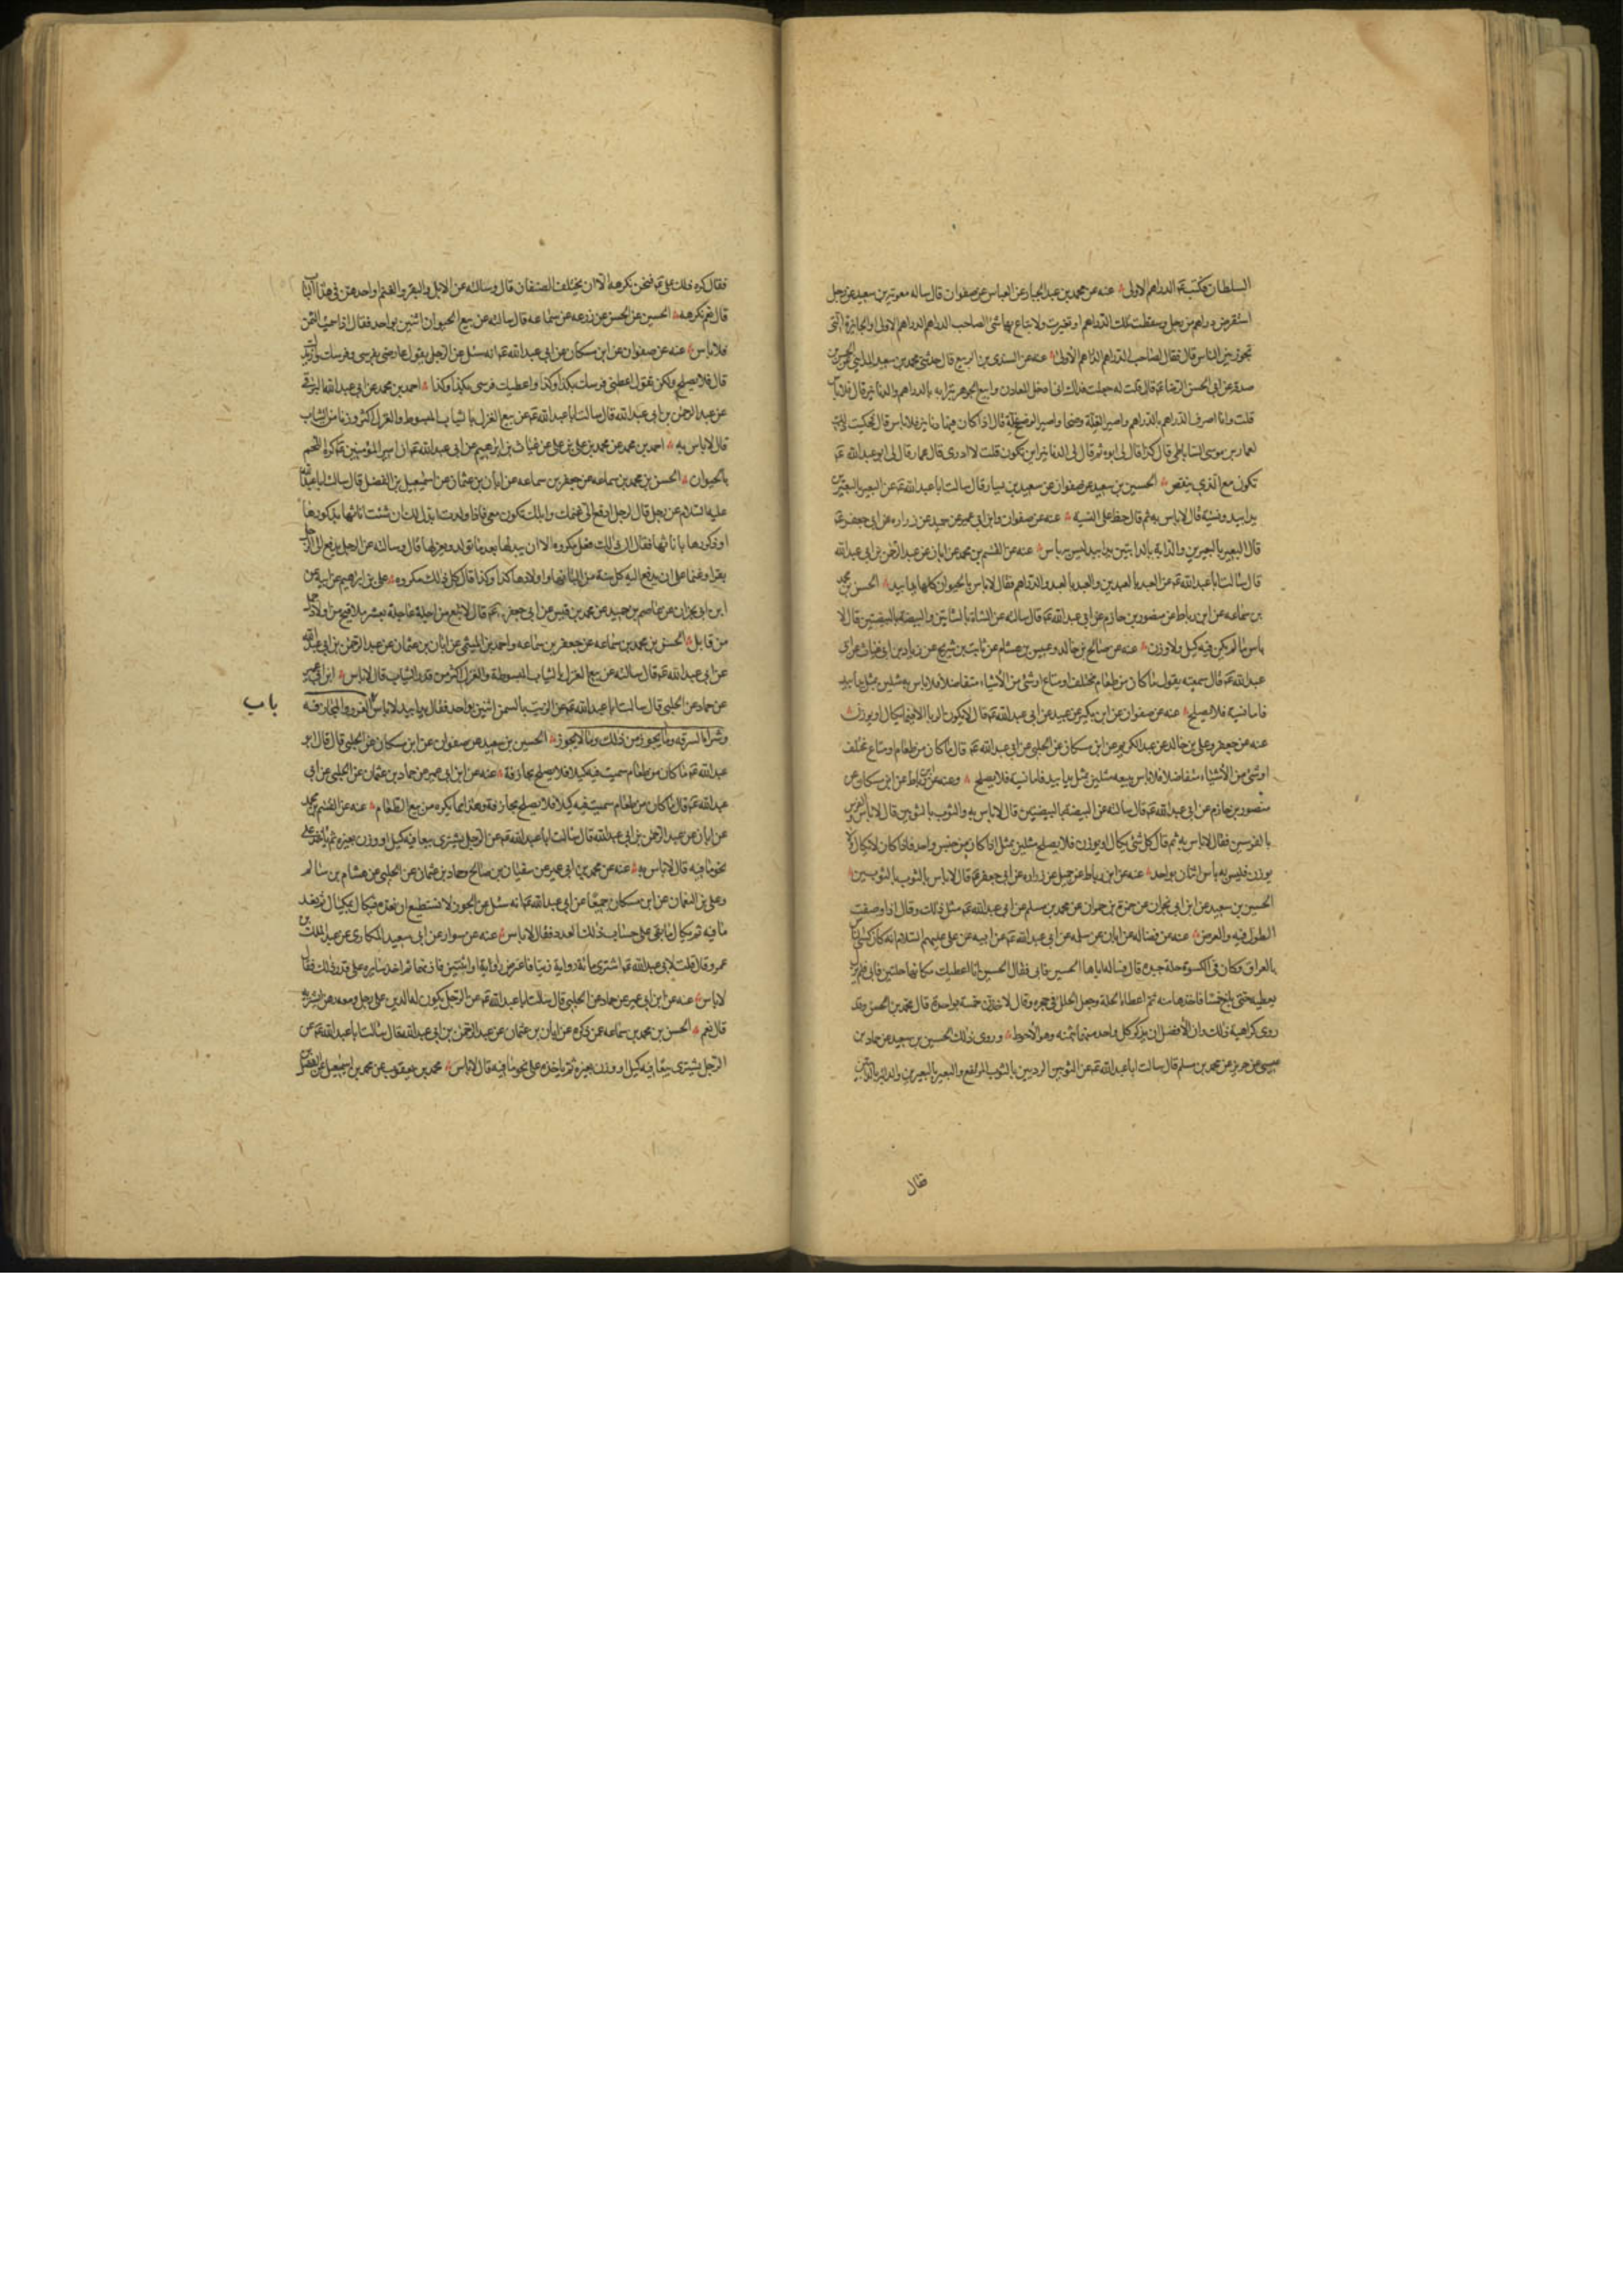 السلطان فكتب عم الدراهم الاولى عنه عن محمد بن عبد الجبار عن العباس عن صفوان قال ساله معوية بن سعيد عن رجل
استقرض دراهم من رجل وسقطت تلك الدراهم او تغيرت ولا يباع بها شئ الصاحب الدراهم الدراهم الاولى او الجائزة التى
تجوز بين الناس قال فقال لصاحب الدراهم الدراهم الاولى عنه عن السندى بن الربيع قال حدثنى محمد بن سعيد المداينى عن الحسن بن
صدقه عن ابى الحسن الرضا عم قال قلت له جعلت فداك انى ادخل المعادن وابيع الجوهر بترابه بالدراهم والدنانير قال لا باس
قلت وانا اصرف الدراهم بالدراهم واصير الغلة وضحا واصير الوضح غلة قال اذا كان فيها دنانير فلا باس قال فحكيت ذلك
لعمار بن موسى الساباطى قال كذا قال لى ابوه ثم قال لى الدنانير اين تكون قلت لا ادرى قال عمار قال لى ابو عبد الله عم
تكون مع الذى ينقص الحسين بن سعيد عن صفوان عن سعيد بن يسار قال سالت ابا عبد الله عم عن البعير بالبعيرين
يدا بيد ونسية قال لا باس به ثم قال خط على النسية عنه عن صفوان وابن ابى عمير عن جميل عن زراره عن ابى جعفر عم
قال البعير بالبعيرين والدابة بالدابتين يدا بيد ليس به باس عنه عن القسم بن محمد عن ابان عن عبد الرحمن بن ابى عبد الله
قال سالت ابا عبد الله عم عن العبد بالعبدين والعبد بالعبد والدراهم فقال لا باس بالحيوان كلها يدا بيد الحسن بن محمد
بن سماعه عن ابن رباط عن منصور بن حازم عن ابى عبد الله عم قال سالته عن الشاة بالشاتين والبيضة بالبيضتين قال لا
باس ما لم يكن فيه كيل ولا وزن عنه عن صالح بن خالد وعبيس بن هشام عن ثابت بن شريح عن زياد بن ابى غياث عن ابى
عبد الله عم قال سمعته يقول ما كان من طعام مختلف او متاع او شئ من الاشياء متفاضلا فلا باس به مثلين بمثل يدا بيد
فاما نسية فلا يصلح عنه عن صفوان عن ابن بكير عن عبيد عن ابى عبد الله عم قال لا يكون الربا الا فيما يكال او يوزن
عنه عن جعفر وعلى بن خالد عن عبد الكريم عن ابن مسكان عن الحلبى عن ابى عبد الله عم قال ما كان من طعام او متاع مختلف
او شئ من الاشياء متفاضلا فلا باس ببيعه مثلين بمثل يدا بيد فاما نسية فلا يصلح وعنه عن ابن رباط عن ابن مسكان عن
منصور بن حازم عن ابى عبد الله عم قال سالته عن البيضة بالبيضتين قال لا باس به والثوب بالثوبين قال لا باس به والفرس
بالفرسين فقال لا باس به ثم قال كل شئ يكال او يوزن فلا يصلح مثلين بمثل اذا كان من جنس واحد فاذا كان لا يكال ولا
يوزن فليس به باس اثنان بواحد عنه عن ابن رباط عن جميل عن زراره عن ابى جعفر عم قال لا باس بالثوب بالثوبين
الحسين بن سعيد عن ابن ابى نجران عن حمزة بن حمران عن محمد بن مسلم عن ابى عبد الله عم مثل ذلك وقال اذا وصفت
الطول فيه والعرض عنه عن فضاله عن ابان عن سلمه عن ابى عبد الله عم عن ابيه عن على عليهم السلام انه كسى الناس
بالعراق وكان فى الكسوة حلة جيدة قال فساله اياها الحسين فابى فقال الحسين انا اعطيك مكانها حلتين فابى فلم يزل
يعطيه حتى بلغ خمسا فاخذها منه ثم اعطاه الحلة وجعل الحلل فى حجره وقال لاخذن خمسة بواحدة قال محمد بن الحسن وقد
روى كراهية ذلك وان الافضل ان يذكر كل واحد منهما ثمنه وهو الاحوط وروى ذلك الحسين بن سعيد عن حماد بن
عيسى عن حريز عن محمد بن مسلم قال سالت ابا عبد الله عم عن الثوبين الرديين بالثوب المرتفع والبعير بالبعيرين والدابة بالدابتين
فقال
فقال كره ذلك على عم فنحن نكرهه الا ان يختلف الصنفان قال وسالته عن الابل والبقر والغنم او احدهن فى هذا الباب
قال نعم نكرهه الحسين عن الحسن عن زرعه عن سماعه قال سالته عن بيع الحيوان اثنين بواحد فقال اذا سميت الثمن
فلا باس عنه عن صفوان عن ابن مسكان عن ابى عبد الله عم انه سئل عن الرجل يقول عاوضنى بفرسى وفرسك وازيدك
قال فلا يصلح ولكن يقول اعطنى فرسك بكذا وكذا واعطيك فرسى بكذا وكذا احمد بن محمد عن ابى عبد الله البرقى
عن عبد الرحمن بن ابى عبد الله قال سالت ابا عبد الله عم عن بيع الغزل بالثياب المبسوطه والغزل اكثر وزنا من الثياب
قال لا باس به احمد بن محمد عن محمد بن على عن غياث بن ابرهيم عن ابى عبد الله عم ان امير المؤمنين عم كره اللحم
بالحيوان الحسن بن محمد بن سماعه عن جعفر بن سماعه عن ابان بن عثمان عن اسمعيل بن الفضل قال سالت ابا عبد الله
عليه السلام عن رجل قال لرجل ادفع الى غنمك وابلك تكون معى فاذا ولدت ابدل لك ان شئت اناثها بذكورها
او ذكورها باناثها فقال ان ذلك فعل مكروه الا ان يبدلها بعد ما تولد ويعزلها قال وسالته عن الرجل يدفع الى الرجل
بقرا وغنما على ان يدفع اليه كل سنة من البانها واولادها كذا وكذا قال كل ذلك مكروه على بن ابرهيم عن ابيه عن
ابن ابى نجران عن عاصم بن حميد عن محمد بن قيس عن ابى جعفر عم قال لا تبع راحلة عاجلة بعشر ملاقيح من اولاد جمل
من قابل الحسن بن محمد بن سماعه عن جعفر بن سماعه واحمد بن الميثمى عن ابان بن عثمان عن عبد الرحمن بن ابى عبد الله
عن ابى عبد الله عم قال سالته عن بيع الغزل بالثياب المبسوطة والغزل اكثر من قدر الثياب قال لا باس ابن ابى عمير
عن حماد عن الحلبى قال سالت ابا عبد الله عم عن الزيت بالسمن اثنين بواحد فقال يدا بيد لا باس الغرر والمجازفه
باب
وشراء السرقه وما يجوز من ذلك وما لا يجوز الحسين بن سعيد عن صفوان عن ابن مسكان عن الحلبى قال قال ابو
عبد الله عم ما كان من طعام سميت فيه كيلا فلا يصلح مجازفة عنه عن ابن ابى عمير عن حماد بن عثمان عن الحلبى عن ابى
عبد الله عم قال ما كان من طعام سميت فيه كيلا فلا يصلح مجازفة وهذا مما يكره من بيع الطعام عنه عن القسم بن محمد
عن ابان عن عبد الرحمن بن ابى عبد الله قال سالت ابا عبد الله عم عن الرجل يشترى بيعا فيه كيل او وزن بعيره ثم ياخذ على
نحو ما فيه قال لا باس به عنه عن محمد بن ابى عمير عن سفيان بن صالح وحماد بن عثمان عن الحلبى عن هشام بن سالم
وعلى بن النعمان عن ابن مسكان جميعا عن ابى عبد الله عم انه سئل عن الجوز لا نستطيع ان نعده فيكال بمكيال ثم يعد
ما فيه ثم يكال ما بقى على حساب ذلك العدد فقال لا باس عنه عن سوار عن ابى سعيد المكارى عن عبد الملك بن
عمرو قال قلت لابى عبد الله عم اشترى مائة رواية زيتا فاعترض راوية او اثنتين فاتزنها ثم اخذ سايره على قدر ذلك فقال
لا باس عنه عن ابن ابى عمير عن حماد عن الحلبى قال سالت ابا عبد الله عم عن الرجل يكون له الدين على رجل ومعه رهن ايشتريه
قال نعم الحسن بن محمد بن سماعه عمن ذكره عن ابان بن عثمان عن عبد الرحمن بن ابى عبد الله قال سالت ابا عبد الله عم عن
الرجل يشترى بيعا فيه كيل او وزن بعيره ثم ياخذه على نحو ما فيه قال لا باس محمد بن يعقوب عن محمد بن اسمعيل عن الفضل بن